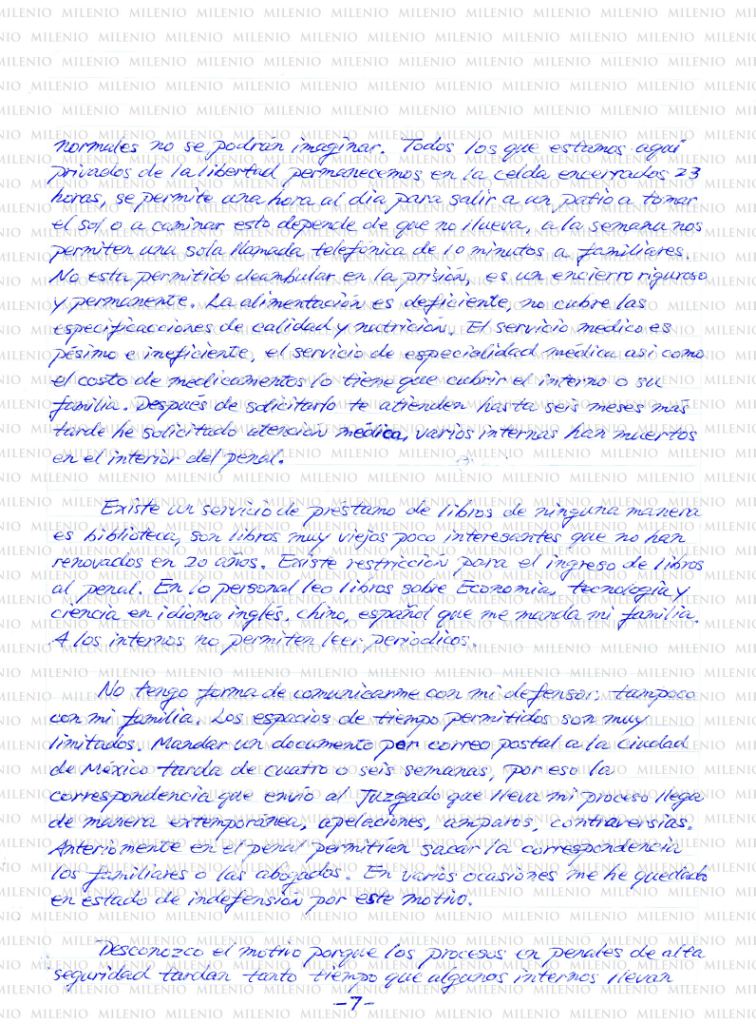 normales no se podrán imaginar. Todos los que estamos aquí
privados de la libertad permanecemos en la celda encerrados 23
horas, se permite una hora al día para salir a un patio a tomar
el sol o a caminar esto depende de que no llueva, a la semana nos
permiten una sola llamada telefónica de 10 minutos a familiares.
No esta permitido deambular en la prisión, es un encierro riguroso
y permanente. La alimentación es deficiente, no cubre las
especificacciones de calidad y nutrición. El servicio medico es
pésimo e ineficiente, el servicio de especialidad médica asi como
el costo de medicamentos lo tiene que cubrir el interno o su
familia. Después de solicitarlo te atienden hasta seis meses más
tarde he solicitado atención médica, varios internos han muertos
en el interior del penal.
Existe un servicio de préstamo de libros de ninguna manera
es biblioteca, son libros muy viejos poco interesantes que no han
renovados en 20 años. Existe restricción para el ingreso de libros
al penal. En lo personal leo libros sobre Economía, tecnología y
ciencia en idioma inglés, chino, español que me manda mi familia.
A los internos no permiten leer periodicos.
No tengo forma de comunicarme con mi defensor, tampoco
con mi familia. Los espacios de tiempo permitidos son muy
limitados. Mandar un documento por correo postal a la ciudad
de México tarda de cuatro o seis semanas, por eso la
correspondencia que envío al Juzgado que lleva mi proceso llega
de manera extemporánea, apelaciones, amparos, controversias.
Anteriomente en el penal permitían sacar la correspondencia
los familiares o las abogados. En varios ocasiones me he quedado
en estado de indefensión por este motivo.
Desconozco el motivo porque los procesos en penales de alta
seguridad tardan tanto tiempo que algunos internos llevan
-7-